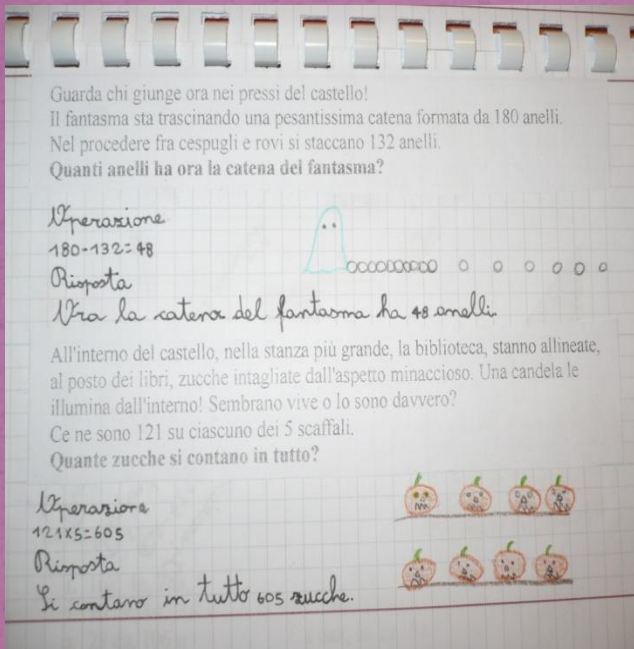 Guarda chi giunge ora nei pressi del castello!
Il fantasma sta trascinando una pesantissima catena formata da 180 anelli.
Nel procedere fra cespugli e rovi si staccano 132 anelli.
Quanti anelli ha ora la catena del fantasma?
Operazione
180-132=48
Risposta
Ora la catena del fantasma ha 48 anelli.
All'interno del castello, nella stanza più grande, la biblioteca, stanno allineate,
al posto dei libri, zucche intagliate dall'aspetto minaccioso. Una candela le
illumina dall'interno! Sembrano vive o lo sono davvero?
Ce ne sono 121 su ciascuno dei 5 scaffali.
Quante zucche si contano in tutto?
Operazione
121x5=605
Risposta
Si contano in tutto 605 zucche.